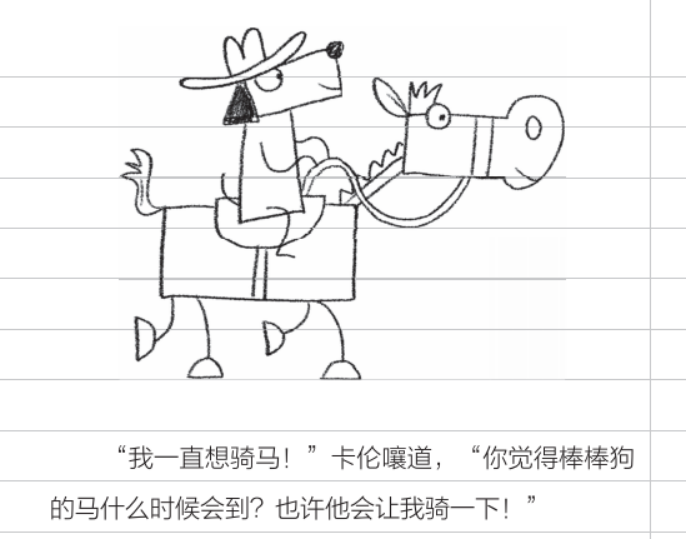 “我一直想骑马！”卡伦嚷道，“你觉得棒棒狗
的马什么时候会到？也许他会让我骑一下！”